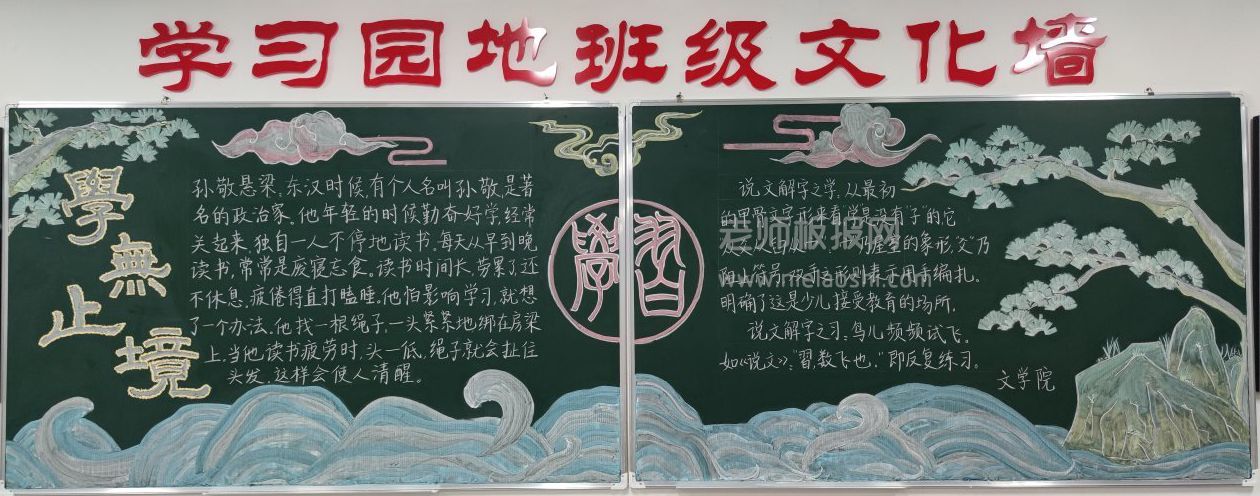 学习园地班级文化墙
學無止境
孙敬悬梁,东汉时候,有个人名叫孙敬,是著
名的政治家。他年轻的时候勤奋好学,经常
关起来,独自一人不停地读书。每天从早到晚
读书,常常是废寝忘食。读书时间长,劳累了,还
不休息,疲倦得直打瞌睡。他怕影响学习,就想
了一个办法。他找一根绳子,一头紧紧地绑在房梁
上,当他读书疲劳时,头一低,绳子就会扯住
头发,这样会使人清醒。
學習
说文解字之学,从最初
的甲骨文字形来看"学"是没有"子"的它
屋室的象形,"爻"乃
用手编扎。
明确了这是少儿接受教育的场所。
说文解字之习:鸟儿频频试飞。
如《说文》:"習,数飞也,"即反复练习。
文学院
老师板报网
www.melaoshi.com